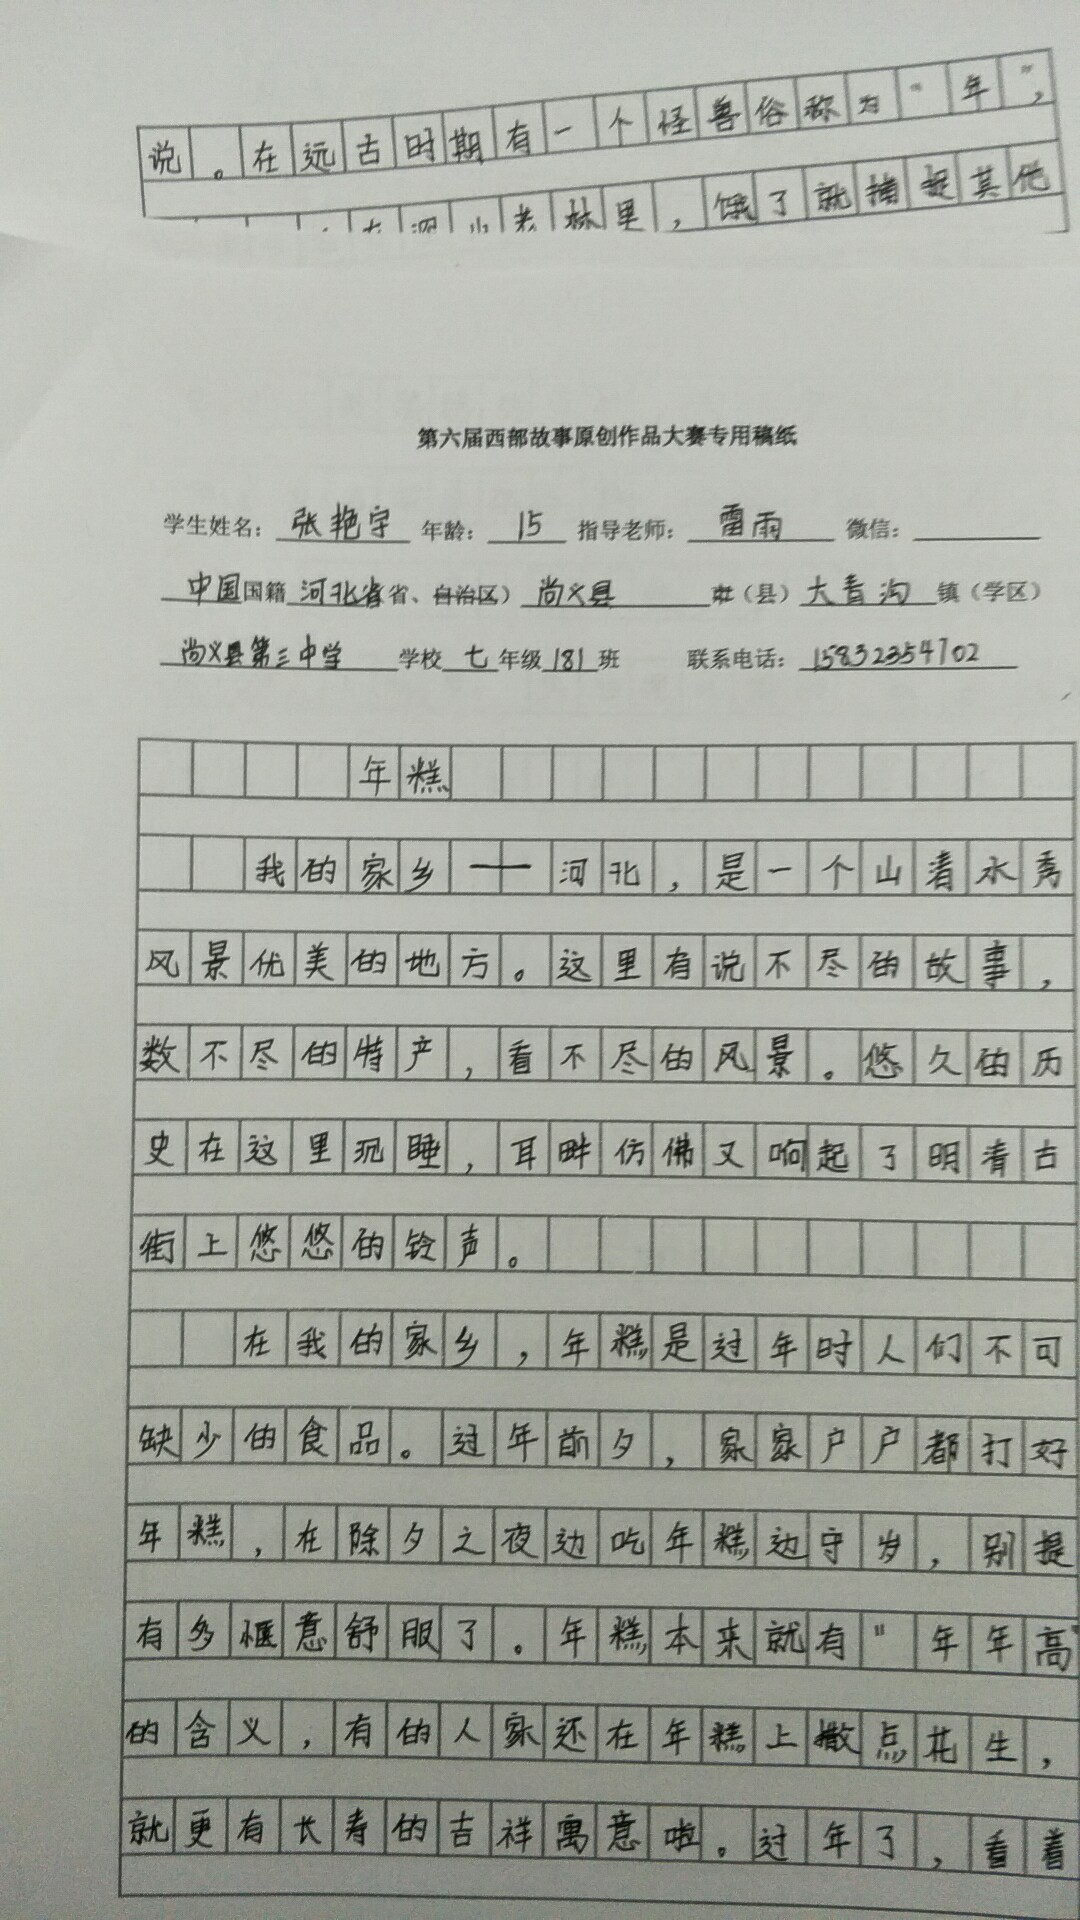 说。在远古时期有一个怪兽俗称为“年”，
在深山老林里，饿了就捕捉其他
第六届西部故事原创作品大赛专用稿纸
学生姓名：张艳宇 年龄：15 指导老师：雷雨 微信：
中国国籍 河北省省、自治区） 尚义县 市（县） 大青沟 镇（学区）
尚义县第三中学 学校 七 年级 181 班 联系电话：15832354702
年糕
我的家乡——河北，是一个山清水秀
风景优美的地方。这里有说不尽的故事，
数不尽的特产，看不尽的风景。悠久的历
史在这里沉睡，耳畔仿佛又响起了明清古
街上悠悠的铃声。
在我的家乡，年糕是过年时人们不可
缺少的食品。过年前夕，家家户户都打好
年糕，在除夕之夜边吃年糕边守岁，别提
有多惬意舒服了。年糕本来就有“年年高”
的含义，有的人家还在年糕上撒点花生，
就更有长寿的吉祥寓意啦。过年了，看着